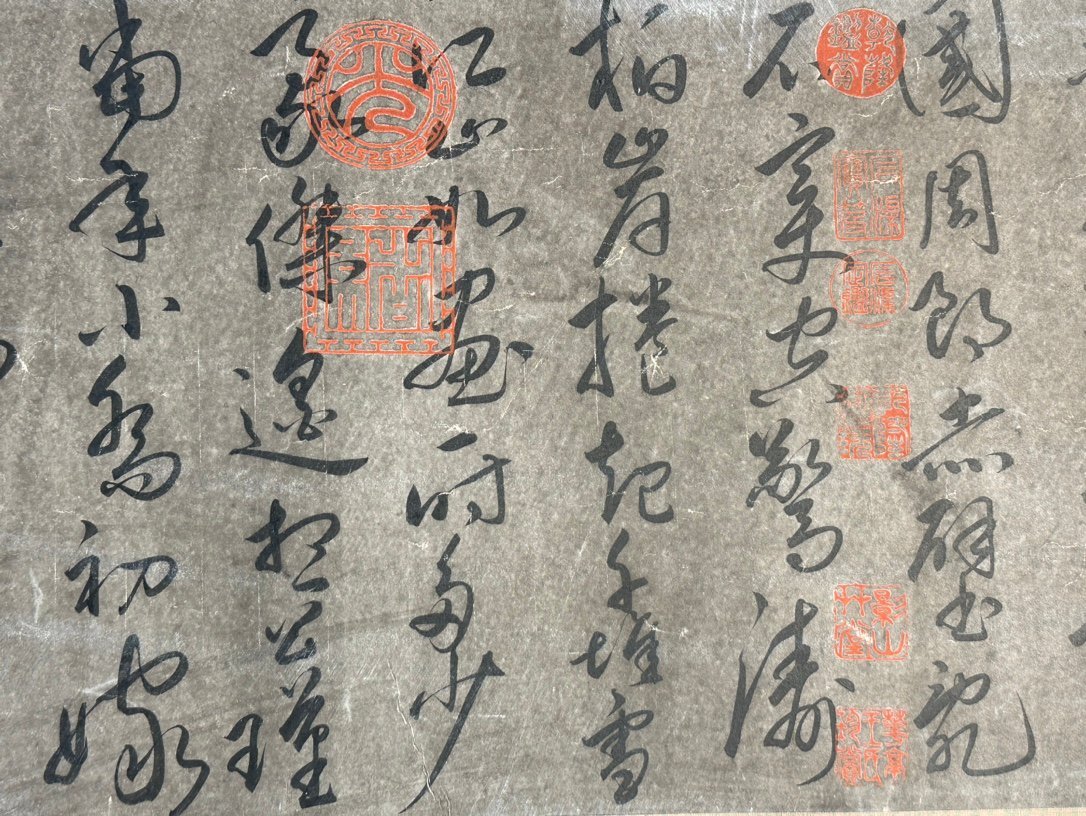 國周郎赤壁亂
石穿空驚濤
拍岸捲起千堆雪
江山如畫一時多少
豪傑遙想公瑾
當年小喬初嫁
乾隆鑑賞